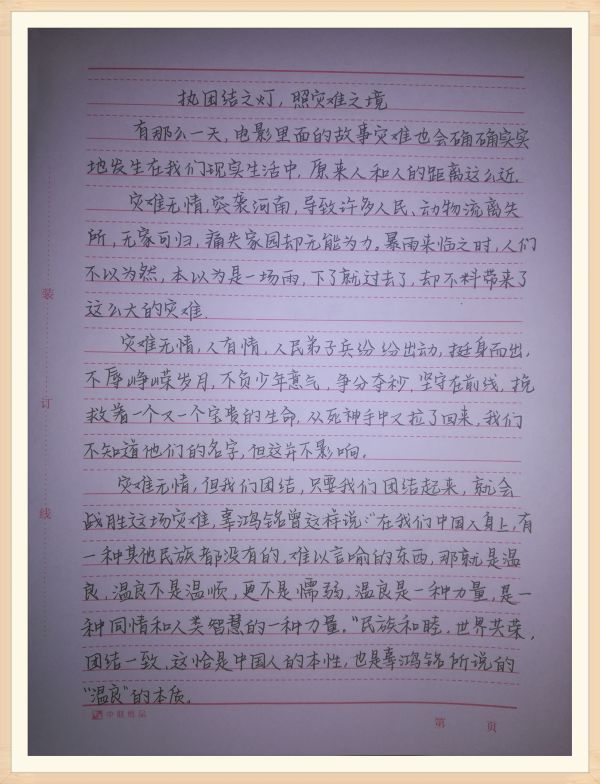 执团结之灯，照灾难之境
有那么一天，电影里面的故事灾难也会确确实实
地发生在我们现实生活中，原来人和人的距离这么近.
灾难无情，突袭河南，导致许多人民、动物流离失
所，无家可归，痛失家园却无能为力。暴雨来临之时，人们
不以为然，本以为是一场雨，下了就过去了，却不料带来了
这么大的灾难.
灾难无情，人有情，人民弟子兵纷纷出动，挺身而出，
不辱峥嵘岁月，不负少年意气，争分夺秒，坚守在前线，挽
救着一个又一个宝贵的生命，从死神手中又拉了回来，我们
不知道他们的名字，但这并不影响。
灾难无情，但我们团结，只要我们团结起来，就会
战胜这场灾难，辜鸿铭曾这样说："在我们中国人身上，有
一种其他民族都没有的，难以言喻的东西，那就是温
良，温良不是温顺，更不是懦弱，温良是一种力量，是一
种同情和人类智慧的一种力量。"民族和睦，世界共荣，
团结一致，这恰是中国人的本性，也是辜鸿铭所说的
"温良"的本质。
装
订
线
第 页